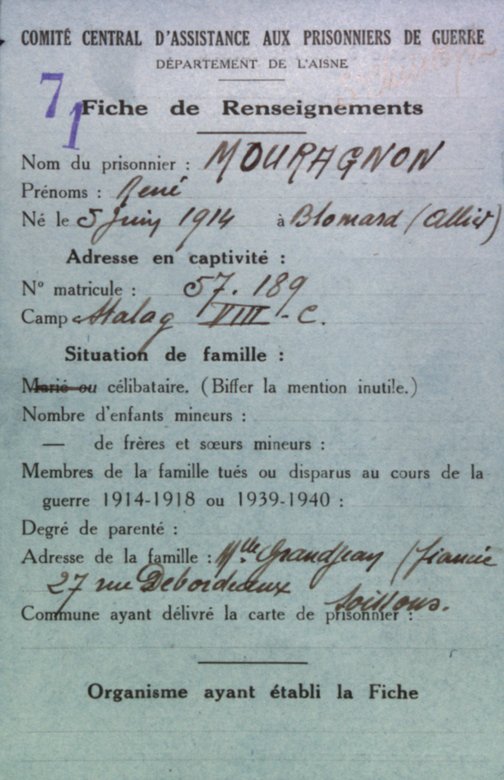 COMITÉ CENTRAL D'ASSISTANCE AUX PRISONNIERS DE GUERRE
DÉPARTEMENT DE L'AISNE
71
Fiche de Renseignements
Nom du prisonnier : MOURAGNON
Prénoms : René
Né le 5 juin 1914 à Blomard (Allier)
Adresse en captivité :
N° matricule : 57.189
Camp Stalag VIII-C.
Situation de famille :
Marié ou célibataire. (Biffer la mention inutile.)
Nombre d'enfants mineurs :
— de frères et sœurs mineurs :
Membres de la famille tués ou disparus au cours de la
guerre 1914-1918 ou 1939-1940 :
Degré de parenté :
Adresse de la famille : Mlle Grandjean (fiancée
27 rue Debordeaux Soissons.
Commune ayant délivré la carte de prisonnier :
Organisme ayant établi la Fiche